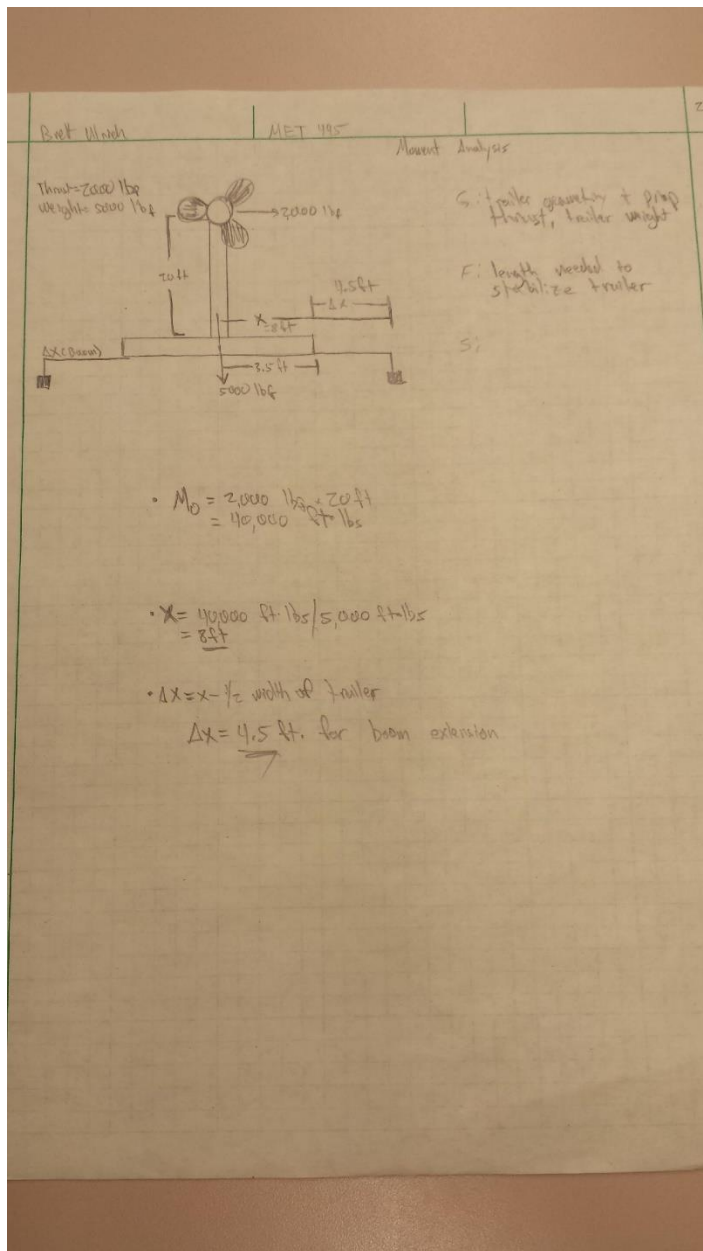 MET 495
2
Moment Analysis
Thrust=2000 lbf
weight= 5000 lbf
2,000 lbf
20ft
4.5ft
Δx
x
=8ft
Δx(Boom)
3.5 ft
5000 lbf
G: trailer geometry + prop
thrust, trailer weight
F: length needed to
stabilize trailer
S:
• Mo = 2,000 lbf × 20ft
= 40,000 ft·lbs
• X= 40,000 ft·lbs/5,000 ft·lbs
= 8ft
• Δx=x- 1/2 width of trailer
Δx= 4.5 ft. for boom extension